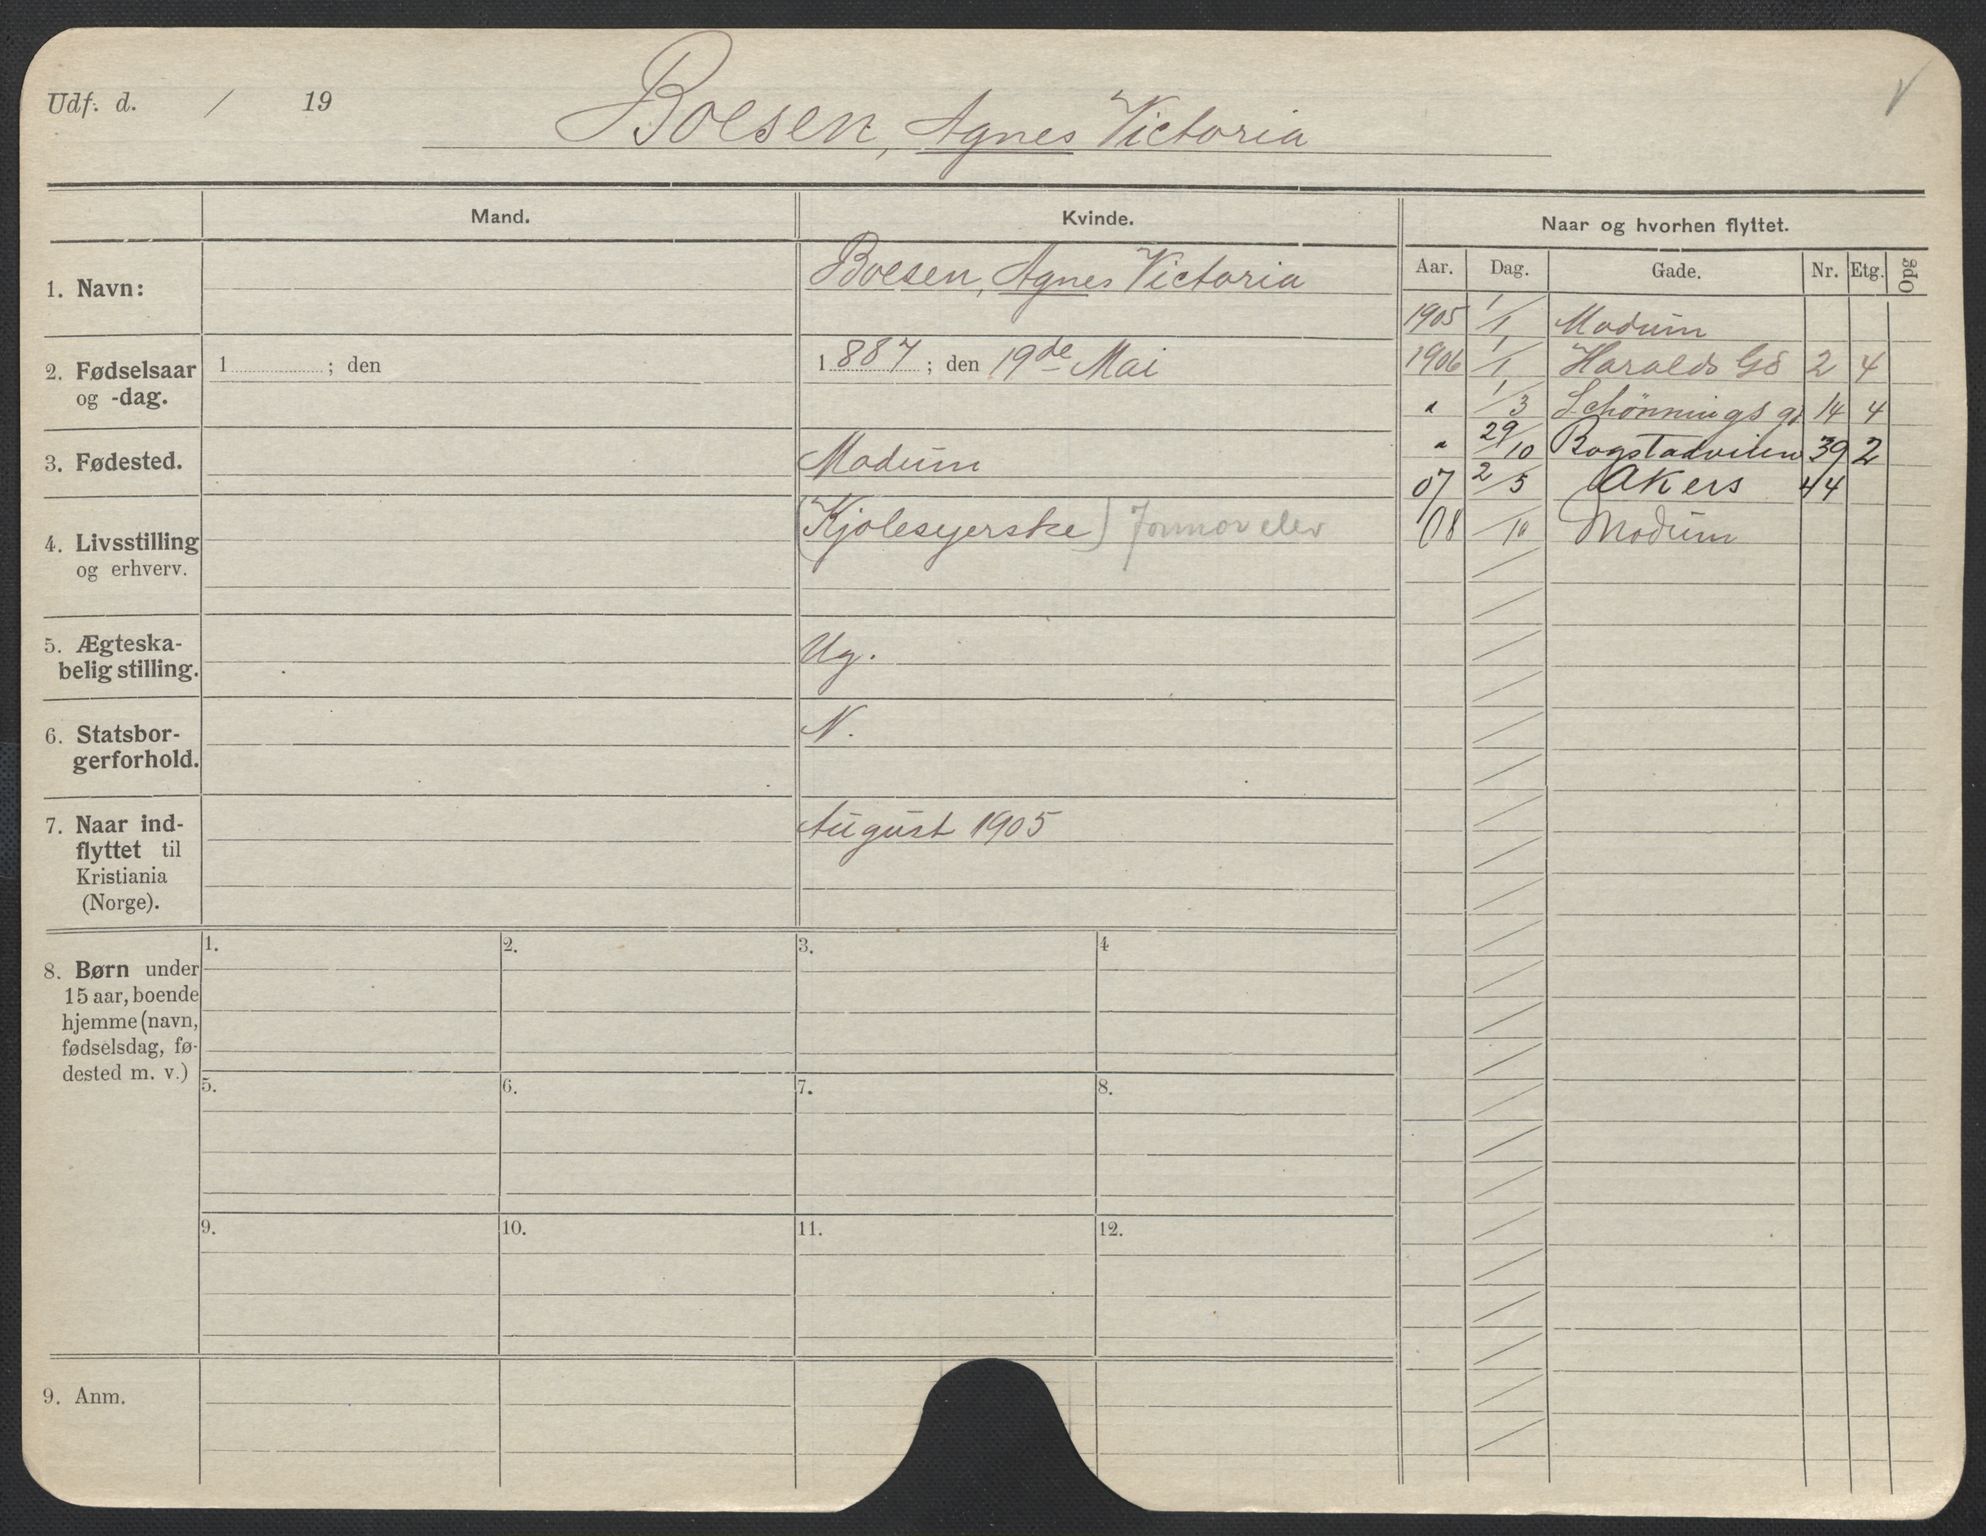 Udf. d. / 19
Boesen, Agnes Victoria
Mand. Kvinde. Naar og hvorhen flyttet.
Aar. Dag. Gade. Nr. Etg. Opg
1. Navn: Boesen, Agnes Victoria
1905 1/1 Modum
2. Fødselsaar 1 ; den 1887 ; den 19de Mai
og -dag.
1906 1/1 Haralds Gd 2 4
" 1/3 Schønnings gd 14 4
" 29/10 Bogstadveien 39 2
3. Fødested. Modum
07 2/5 Akers 44
08 /10 Modum
4. Livsstilling (Kjolesyerske)
og erhverv.
5. Ægteska- Ug.
belig stilling.
6. Statsbor- N.
gerforhold.
7. Naar ind- August 1905
flyttet til
Kristiania
(Norge).
8. Børn under
15 aar, boende
hjemme (navn,
fødselsdag, fø-
dested m. v.)
1. 2. 3. 4
5. 6. 7. 8.
9. 10. 11. 12.
9. Anm.